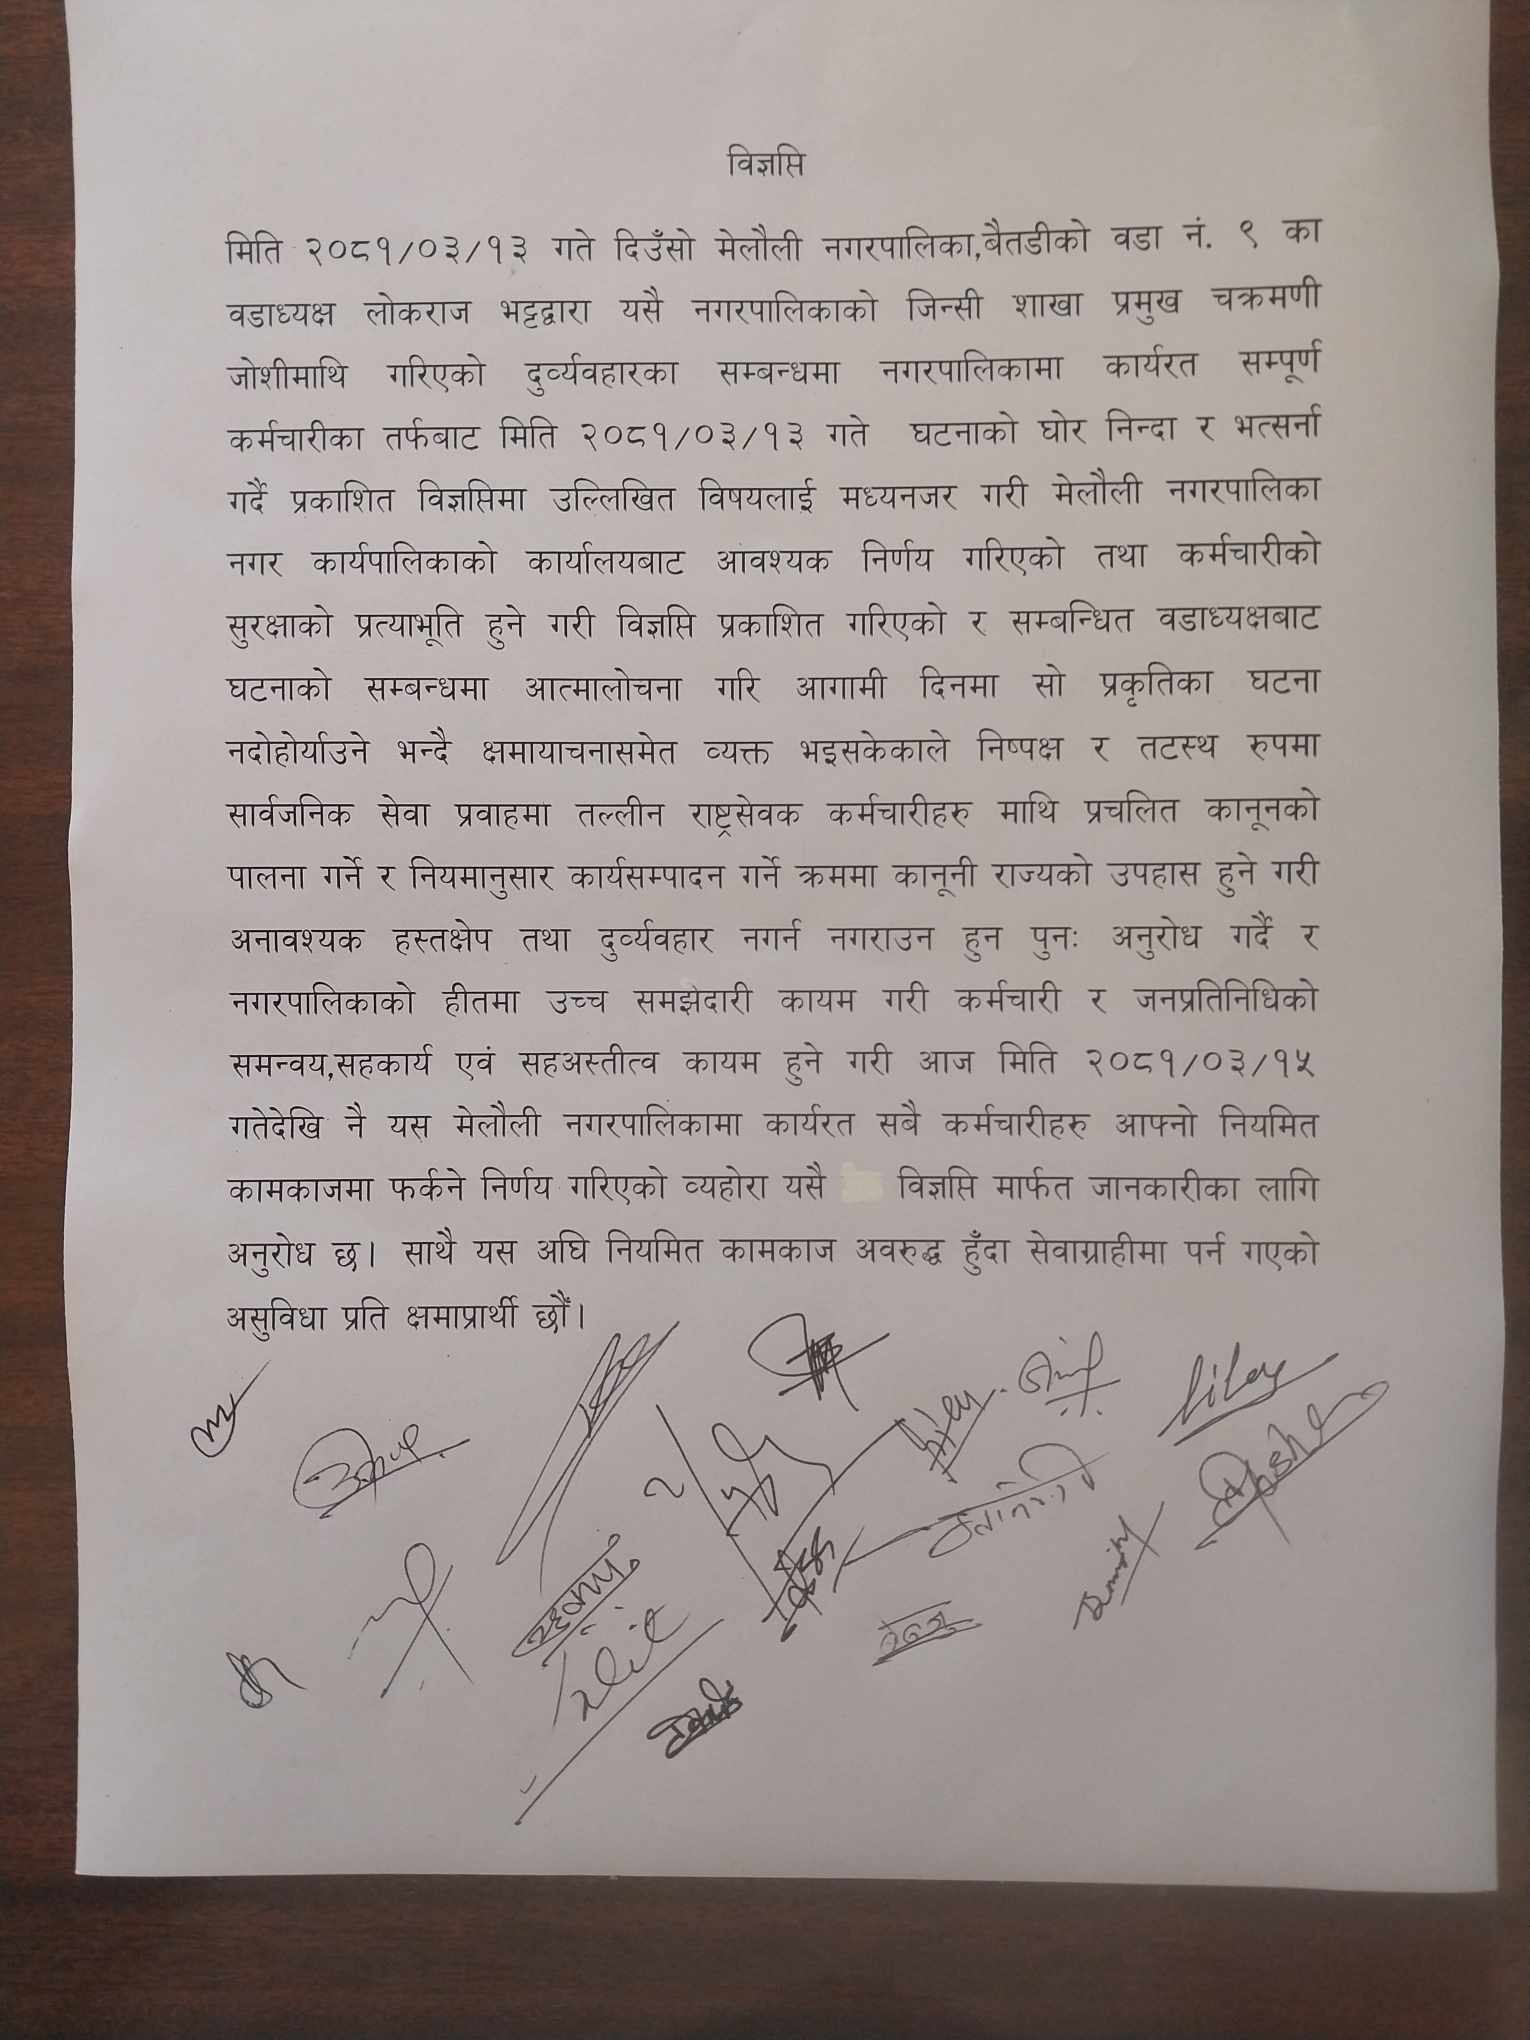 विज्ञप्ति
मिति २०८१/०३/१३ गते दिउँसो मेलौली नगरपालिका,बैतडीको वडा नं. ९ का
वडाध्यक्ष लोकराज भट्टद्वारा यसै नगरपालिकाको जिन्सी शाखा प्रमुख चक्रमणी
जोशीमाथि गरिएको दुर्व्यवहारका सम्बन्धमा नगरपालिकामा कार्यरत सम्पूर्ण
कर्मचारीका तर्फबाट मिति २०८१/०३/१३ गते घटनाको घोर निन्दा र भत्सर्ना
गर्दै प्रकाशित विज्ञप्तिमा उल्लिखित विषयलाई मध्यनजर गरी मेलौली नगरपालिका
नगर कार्यपालिकाको कार्यालयबाट आवश्यक निर्णय गरिएको तथा कर्मचारीको
सुरक्षाको प्रत्याभूति हुने गरी विज्ञप्ति प्रकाशित गरिएको र सम्बन्धित वडाध्यक्षबाट
घटनाको सम्बन्धमा आत्मालोचना गरि आगामी दिनमा सो प्रकृतिका घटना
नदोहोर्याउने भन्दै क्षमायाचनासमेत व्यक्त भइसकेकाले निष्पक्ष र तटस्थ रुपमा
सार्वजनिक सेवा प्रवाहमा तल्लीन राष्ट्रसेवक कर्मचारीहरु माथि प्रचलित कानूनको
पालना गर्ने र नियमानुसार कार्यसम्पादन गर्ने क्रममा कानूनी राज्यको उपहास हुने गरी
अनावश्यक हस्तक्षेप तथा दुर्व्यवहार नगर्न नगराउन हुन पुनः अनुरोध गर्दै र
नगरपालिकाको हीतमा उच्च समझेदारी कायम गरी कर्मचारी र जनप्रतिनिधिको
समन्वय,सहकार्य एवं सहअस्तीत्व कायम हुने गरी आज मिति २०८१/०३/१५
गतेदेखि नै यस मेलौली नगरपालिकामा कार्यरत सबै कर्मचारीहरु आफ्नो नियमित
कामकाजमा फर्कने निर्णय गरिएको व्यहोरा यसै विज्ञप्ति मार्फत जानकारीका लागि
अनुरोध छ। साथै यस अघि नियमित कामकाज अवरुद्ध हुँदा सेवाग्राहीमा पर्न गएको
असुविधा प्रति क्षमाप्रार्थी छौं।